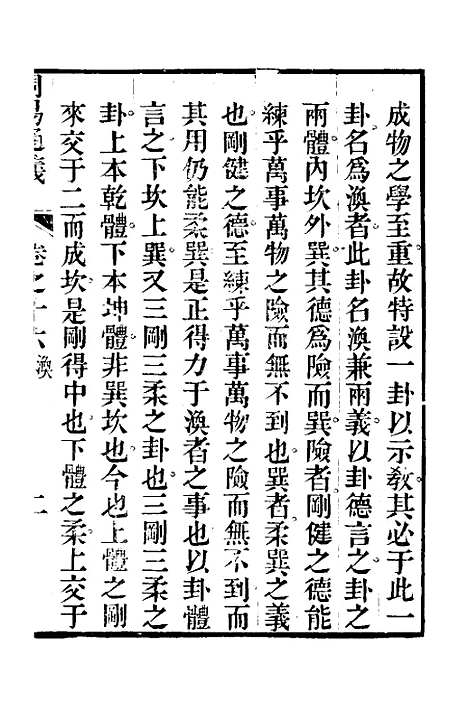 成物之學至重故特設一卦以示教其必于此一
卦名爲渙者此卦名渙兼兩義以卦德言之卦之
兩體內坎外巽其德爲險而巽險者剛健之德能
練乎萬事萬物之險而無不到也巽者柔巽之義
也剛健之德至練乎萬事萬物之險而無不到而
其用仍能柔巽是正得力于渙者之事也以卦體
言之下坎上巽又三剛三柔之卦也三剛三柔之
卦上本乾體下本坤體非巽坎也今也上體之剛
來交于二而成坎是剛得中也下體之柔上交于
周易通義 卷之十六 渙 二